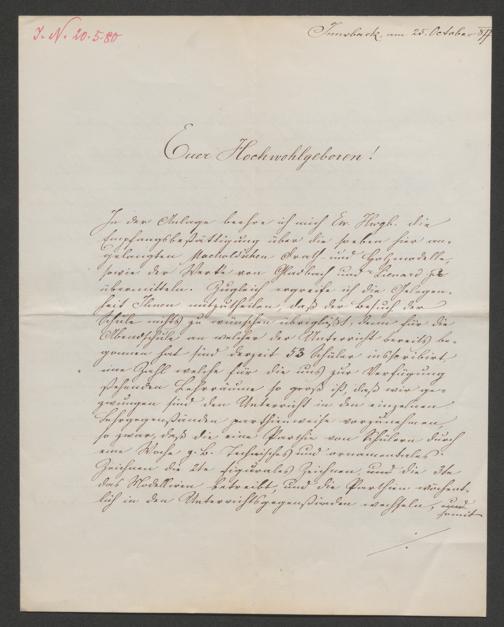 J. N. 20.580
Innsbruck, am 25. October 877
Euer Hochwohlgeboren!
In der Anlage beehre ich mich Ew. Hwgb. die
Empfangsbestättigung über die soeben hier an-
gelangten Draht und Holzmodelle,
sowie der Werke von Gladbach und zu
übermitteln. Zugleich ergreife ich die Gelegen-
heit Ihnen mitzutheilen, daß der Besuch der
Schule nichts zu wünschen übrigläßt, denn für die
Abendschule an welcher der Unterricht bereits be-
gonnen hat sind derzeit 53 Schüler inskribirt,
eine Zahl welche für die uns zur Verfügung
stehenden Lehrräume so groß ist, daß wir ge-
zwungen sind den Unterricht in den einzelnen
Lehrgegenständen parthienweise vorzunehmen,
so zwar, daß die eine Parthie von Schülern durch
eine Woche z. B. Technisches und ornamentales-
Zeichnen die 2te figurales Zeichnen, und die 3te
das Modelliren betreibt, und die Parthien wöchent-
lich in den Unterrichtsgegenständen wechseln, und
somit